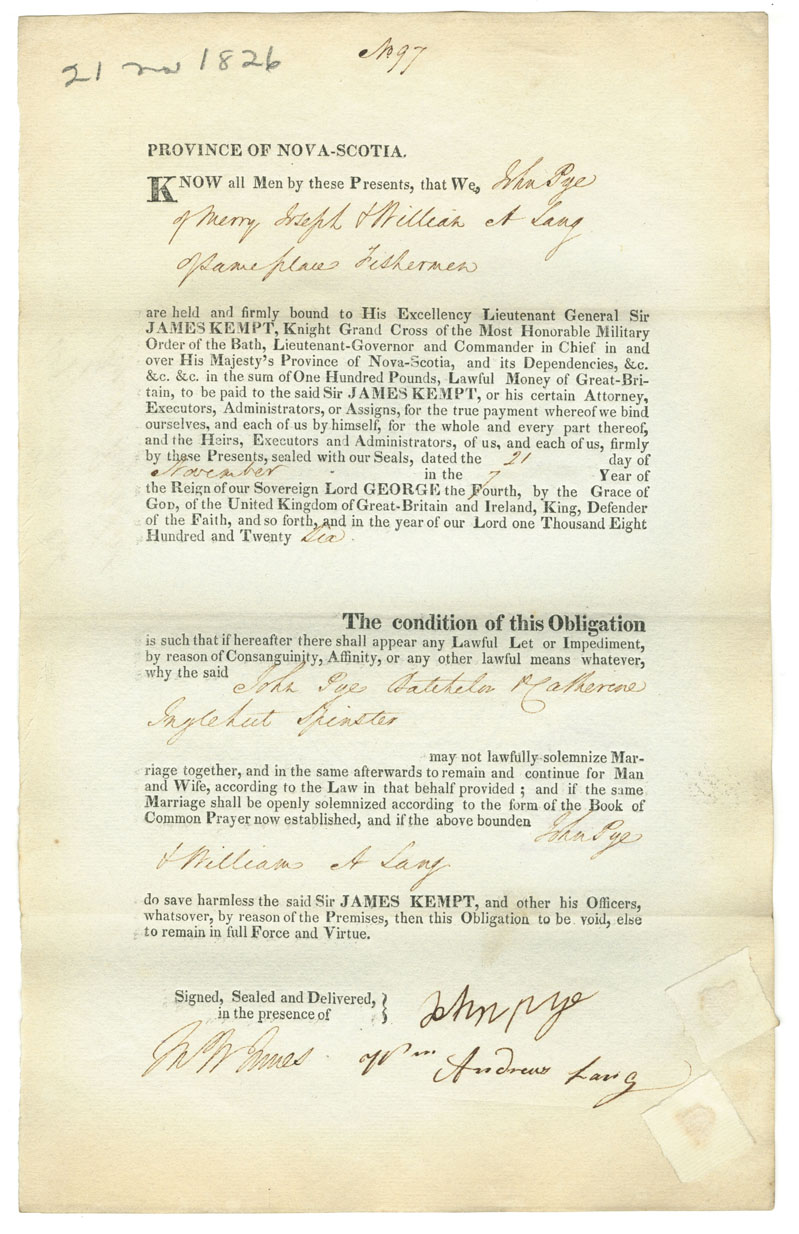 21 no 1826
No 97
PROVINCE OF NOVA-SCOTIA.
KNOW all Men by these Presents, that We, John Pye
of Merry Joseph & William A Lang
of same place Fishermen
are held and firmly bound to His Excellency Lieutenant General Sir
JAMES KEMPT, Knight Grand Cross of the Most Honorable Military
Order of the Bath, Lieutenant-Governor and Commander in Chief in and
over His Majesty's Province of Nova-Scotia, and its Dependencies, &c.
&c. &c. in the sum of One Hundred Pounds, Lawful Money of Great-Bri-
tain, to be paid to the said Sir JAMES KEMPT, or his certain Attorney,
Executors, Administrators, or Assigns, for the true payment whereof we bind
ourselves, and each of us by himself, for the whole and every part thereof,
and the Heirs, Executors and Administrators, of us, and each of us, firmly
by these Presents, sealed with our Seals, dated the 21 day of
November in the 7 Year of
the Reign of our Sovereign Lord GEORGE the Fourth, by the Grace of
GOD, of the United Kingdom of Great-Britain and Ireland, King, Defender
of the Faith, and so forth, and in the year of our Lord one Thousand Eight
Hundred and Twenty Six.
The condition of this Obligation
is such that if hereafter there shall appear any Lawful Let or Impediment,
by reason of Consanguinity, Affinity, or any other lawful means whatever,
why the said John Pye Batchelor & Catherine
Inglehut Spinster
may not lawfully solemnize Mar-
riage together, and in the same afterwards to remain and continue for Man
and Wife, according to the Law in that behalf provided ; and if the same
Marriage shall be openly solemnized according to the form of the Book of
Common Prayer now established, and if the above bounden John Pye
& William A Lang
do save harmless the said Sir JAMES KEMPT, and other his Officers,
whatsover, by reason of the Premises, then this Obligation to be void, else
to remain in full Force and Virtue.
Signed, Sealed and Delivered, }
in the presence of
John pye
Andrew Lang